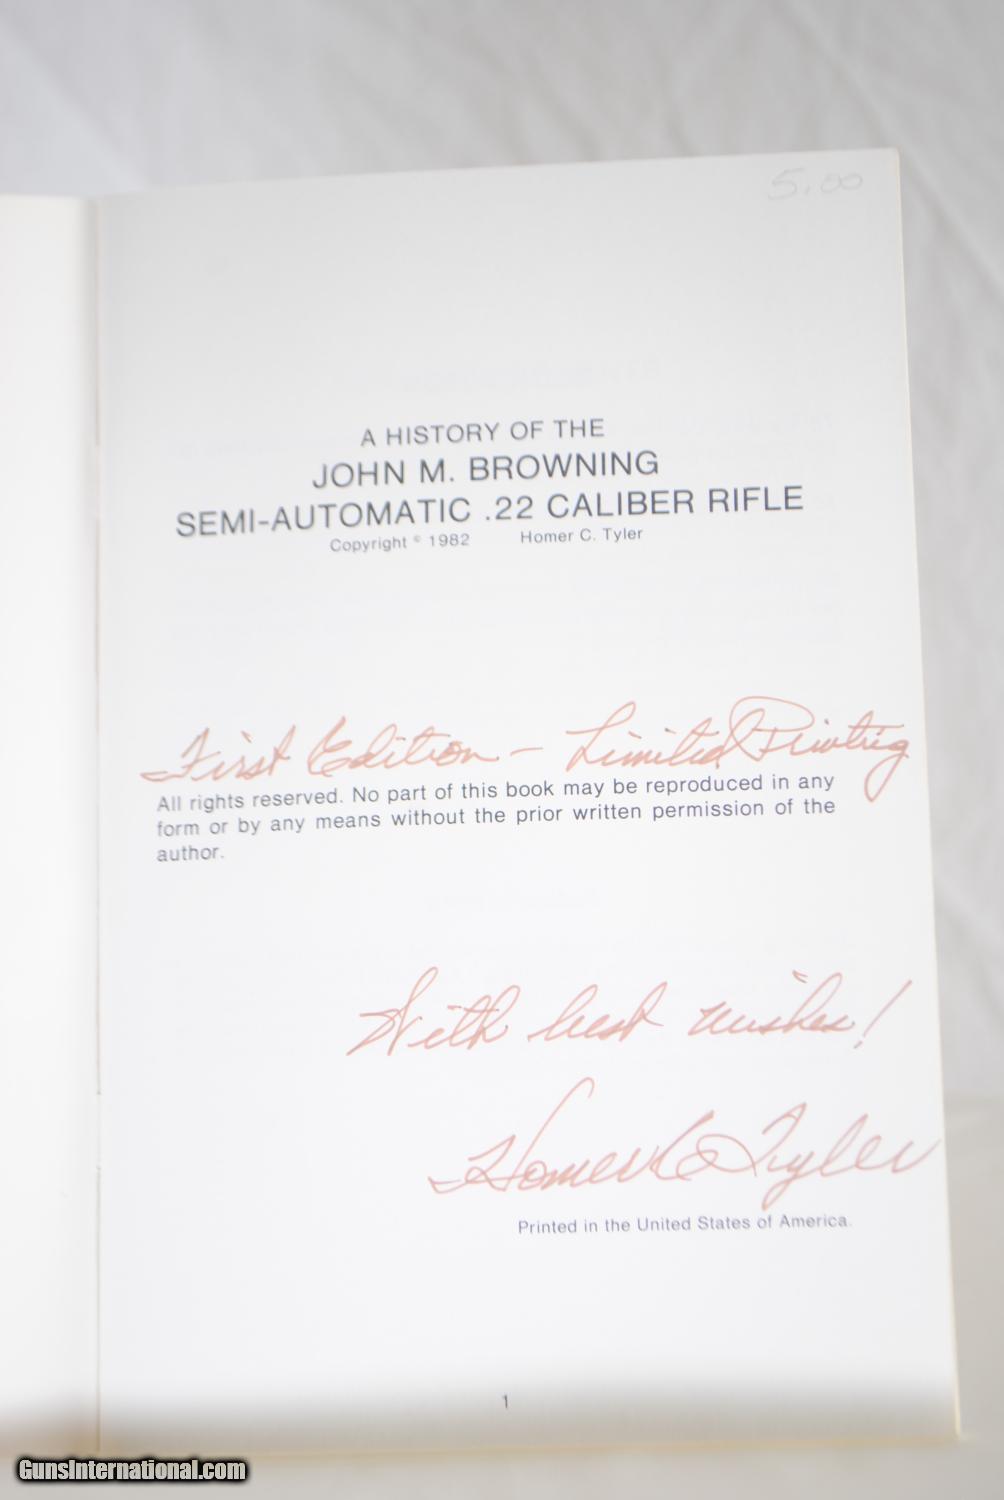 5.00
A HISTORY OF THE
JOHN M. BROWNING
SEMI-AUTOMATIC .22 CALIBER RIFLE
Copyright © 1982 Homer C. Tyler
First Edition — Limited Printing
All rights reserved. No part of this book may be reproduced in any
form or by any means without the prior written permission of the
author.
With best wishes!
Homer C Tyler
Printed in the United States of America.
1
GunsInternational.com